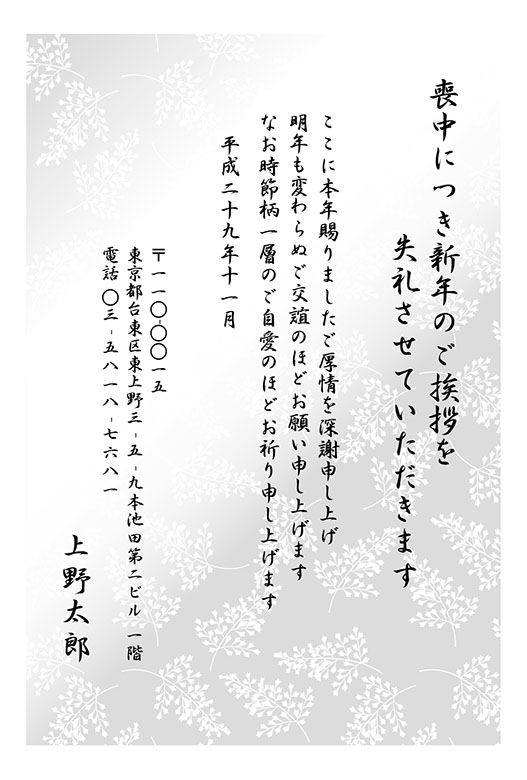 喪中につき新年のご挨拶を
失礼させていただきます
ここに本年賜りましたご厚情を深謝申し上げ
明年も変わらぬご交誼のほどお願い申し上げます
なお時節柄一層のご自愛のほどお祈り申し上げます
平成二十九年十一月
〒一一〇-〇〇一五
東京都台東区東上野三-五-九本池田第二ビル 一階
電話〇三-五八一八-七六八一
上野太郎